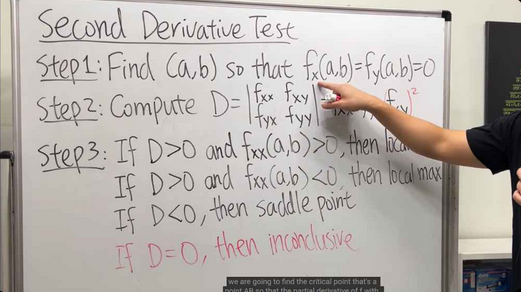 Second Derivative Test
Step1: Find (a,b) so that fx(a,b)=fy(a,b)=0
Step2: Compute D=|fxx fxy
fyx fyy|
Step3: If D>0 and fxx(a,b)>0, then local
If D>0 and fxx(a,b)<0, then local max
If D<0, then saddle point
If D=0, then inconclusive
we are going to find the critical point that's a
point AB so that the partial derivative of f with